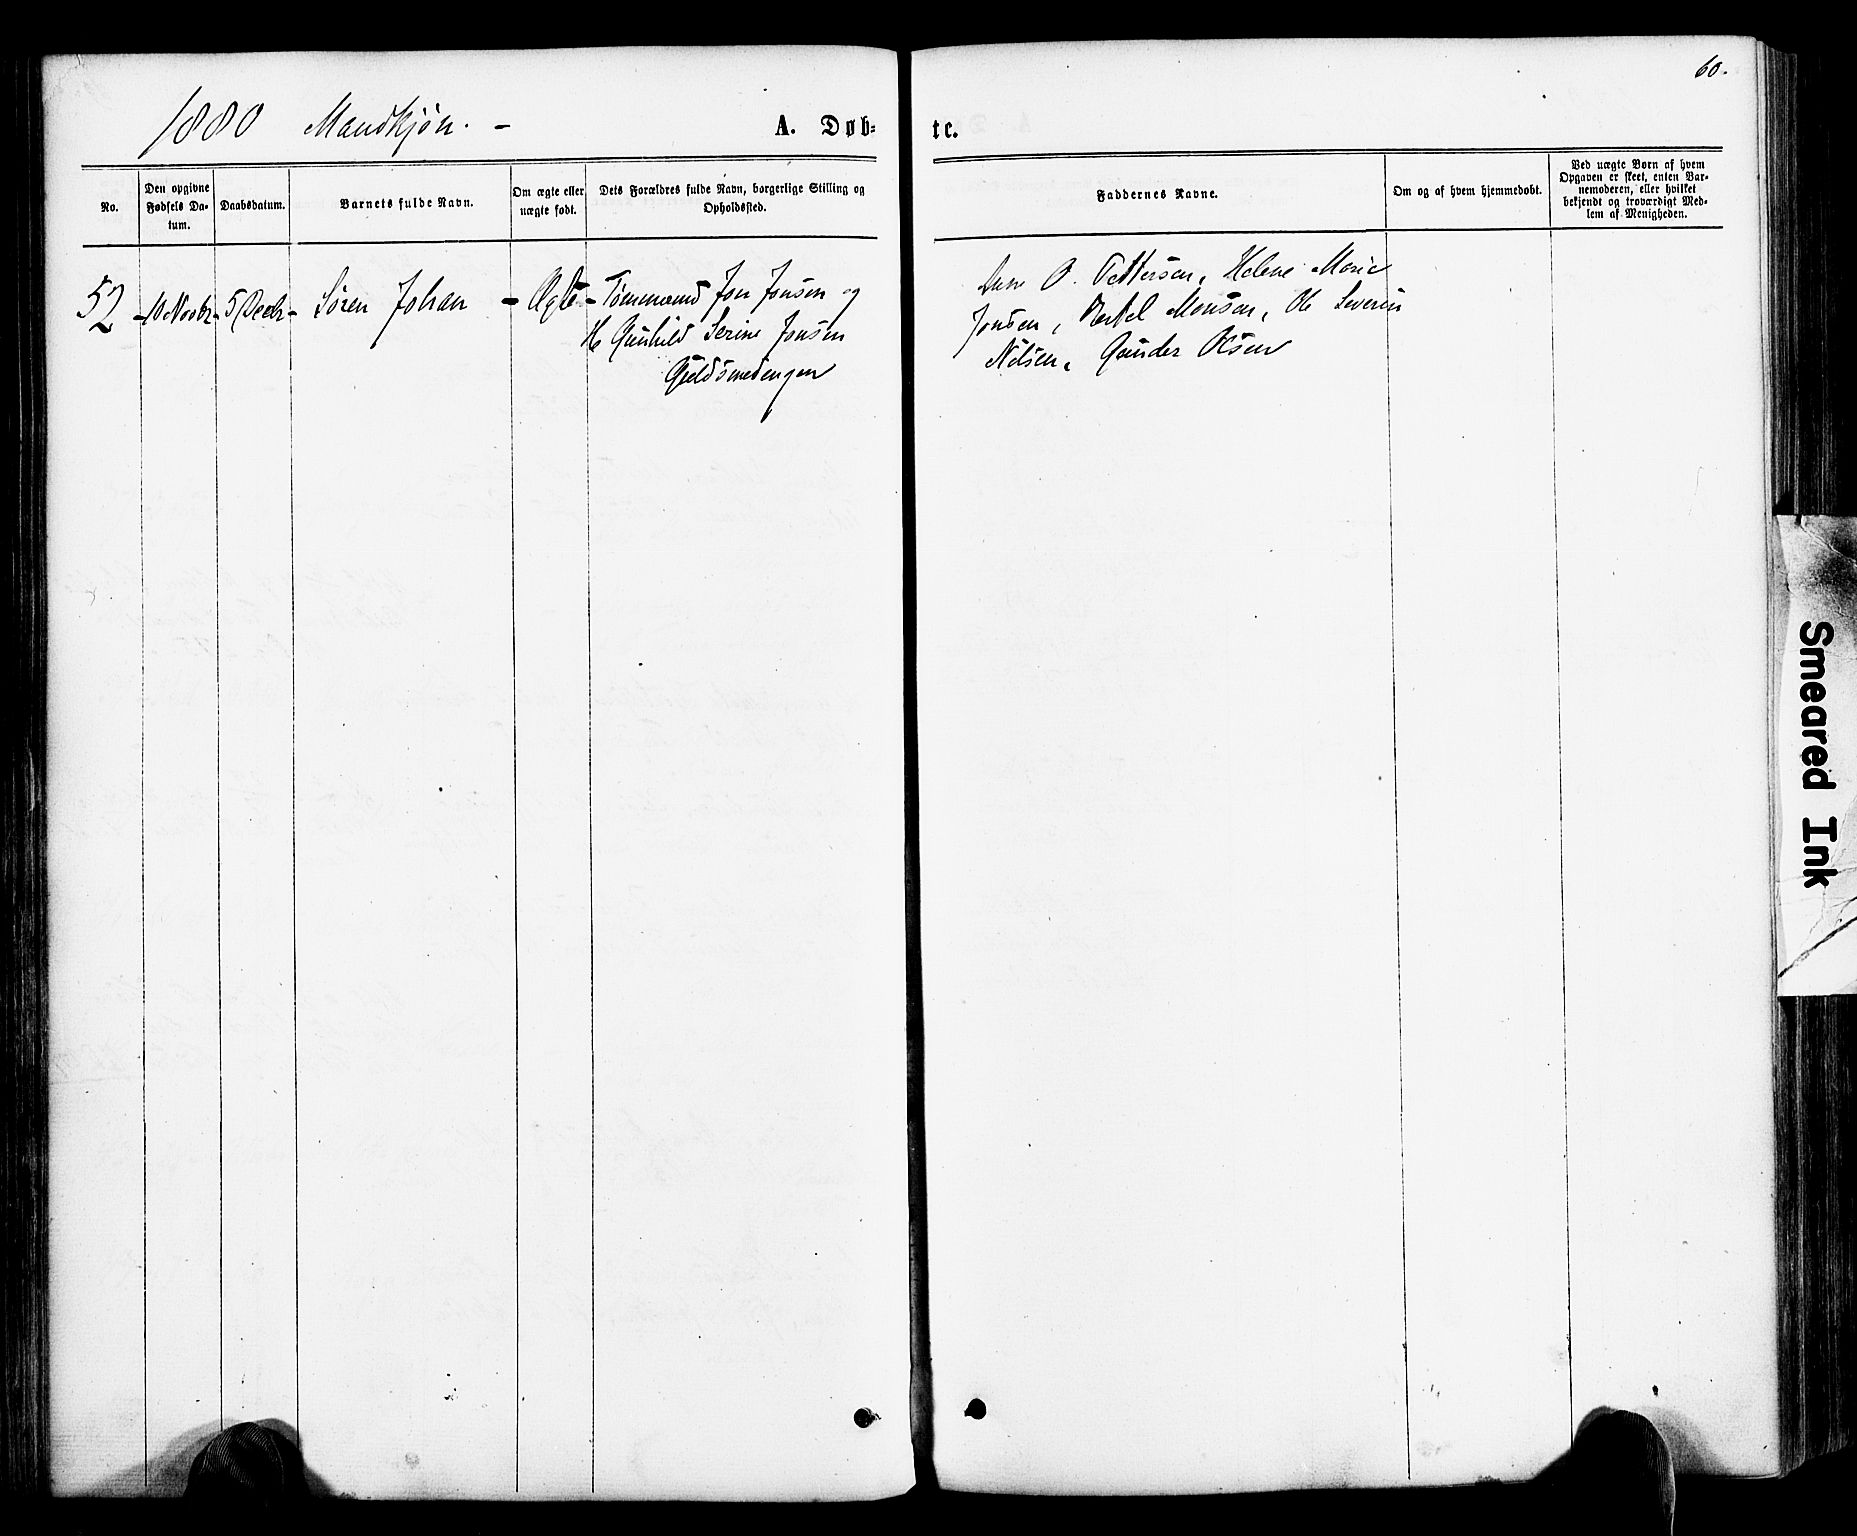 60.
1880 Mandkjøn. -
A. Døb-
te.
No.
Den opgivne
Fødsels Da-
tum.
Daabsdatum.
Barnets fulde Navn.
Om ægte eller
uægte født.
Dets Forældres fulde Navn, borgerlige Stilling og
Opholdssted.
Faddernes Navne.
Om og af hvem hjemmedøbt.
Ved uægte Børn af hvem
Opgaven er skeet, enten Bar-
nemoderen, eller hvilket
bekjendt og troværdigt Med-
lem af Menigheden.
52 - 10 Novbr - 5 Decbr - Søren Johan - Ægte - Tømmermd Jon Jonsen og
H Gunhild Serine Jonsen
Guldsmedengen
O. Pettersen, Helene Marie
Jonsen, Bertel Monsen, Ole Severin
Nilsen, Gunder Olsen
Smeared Ink